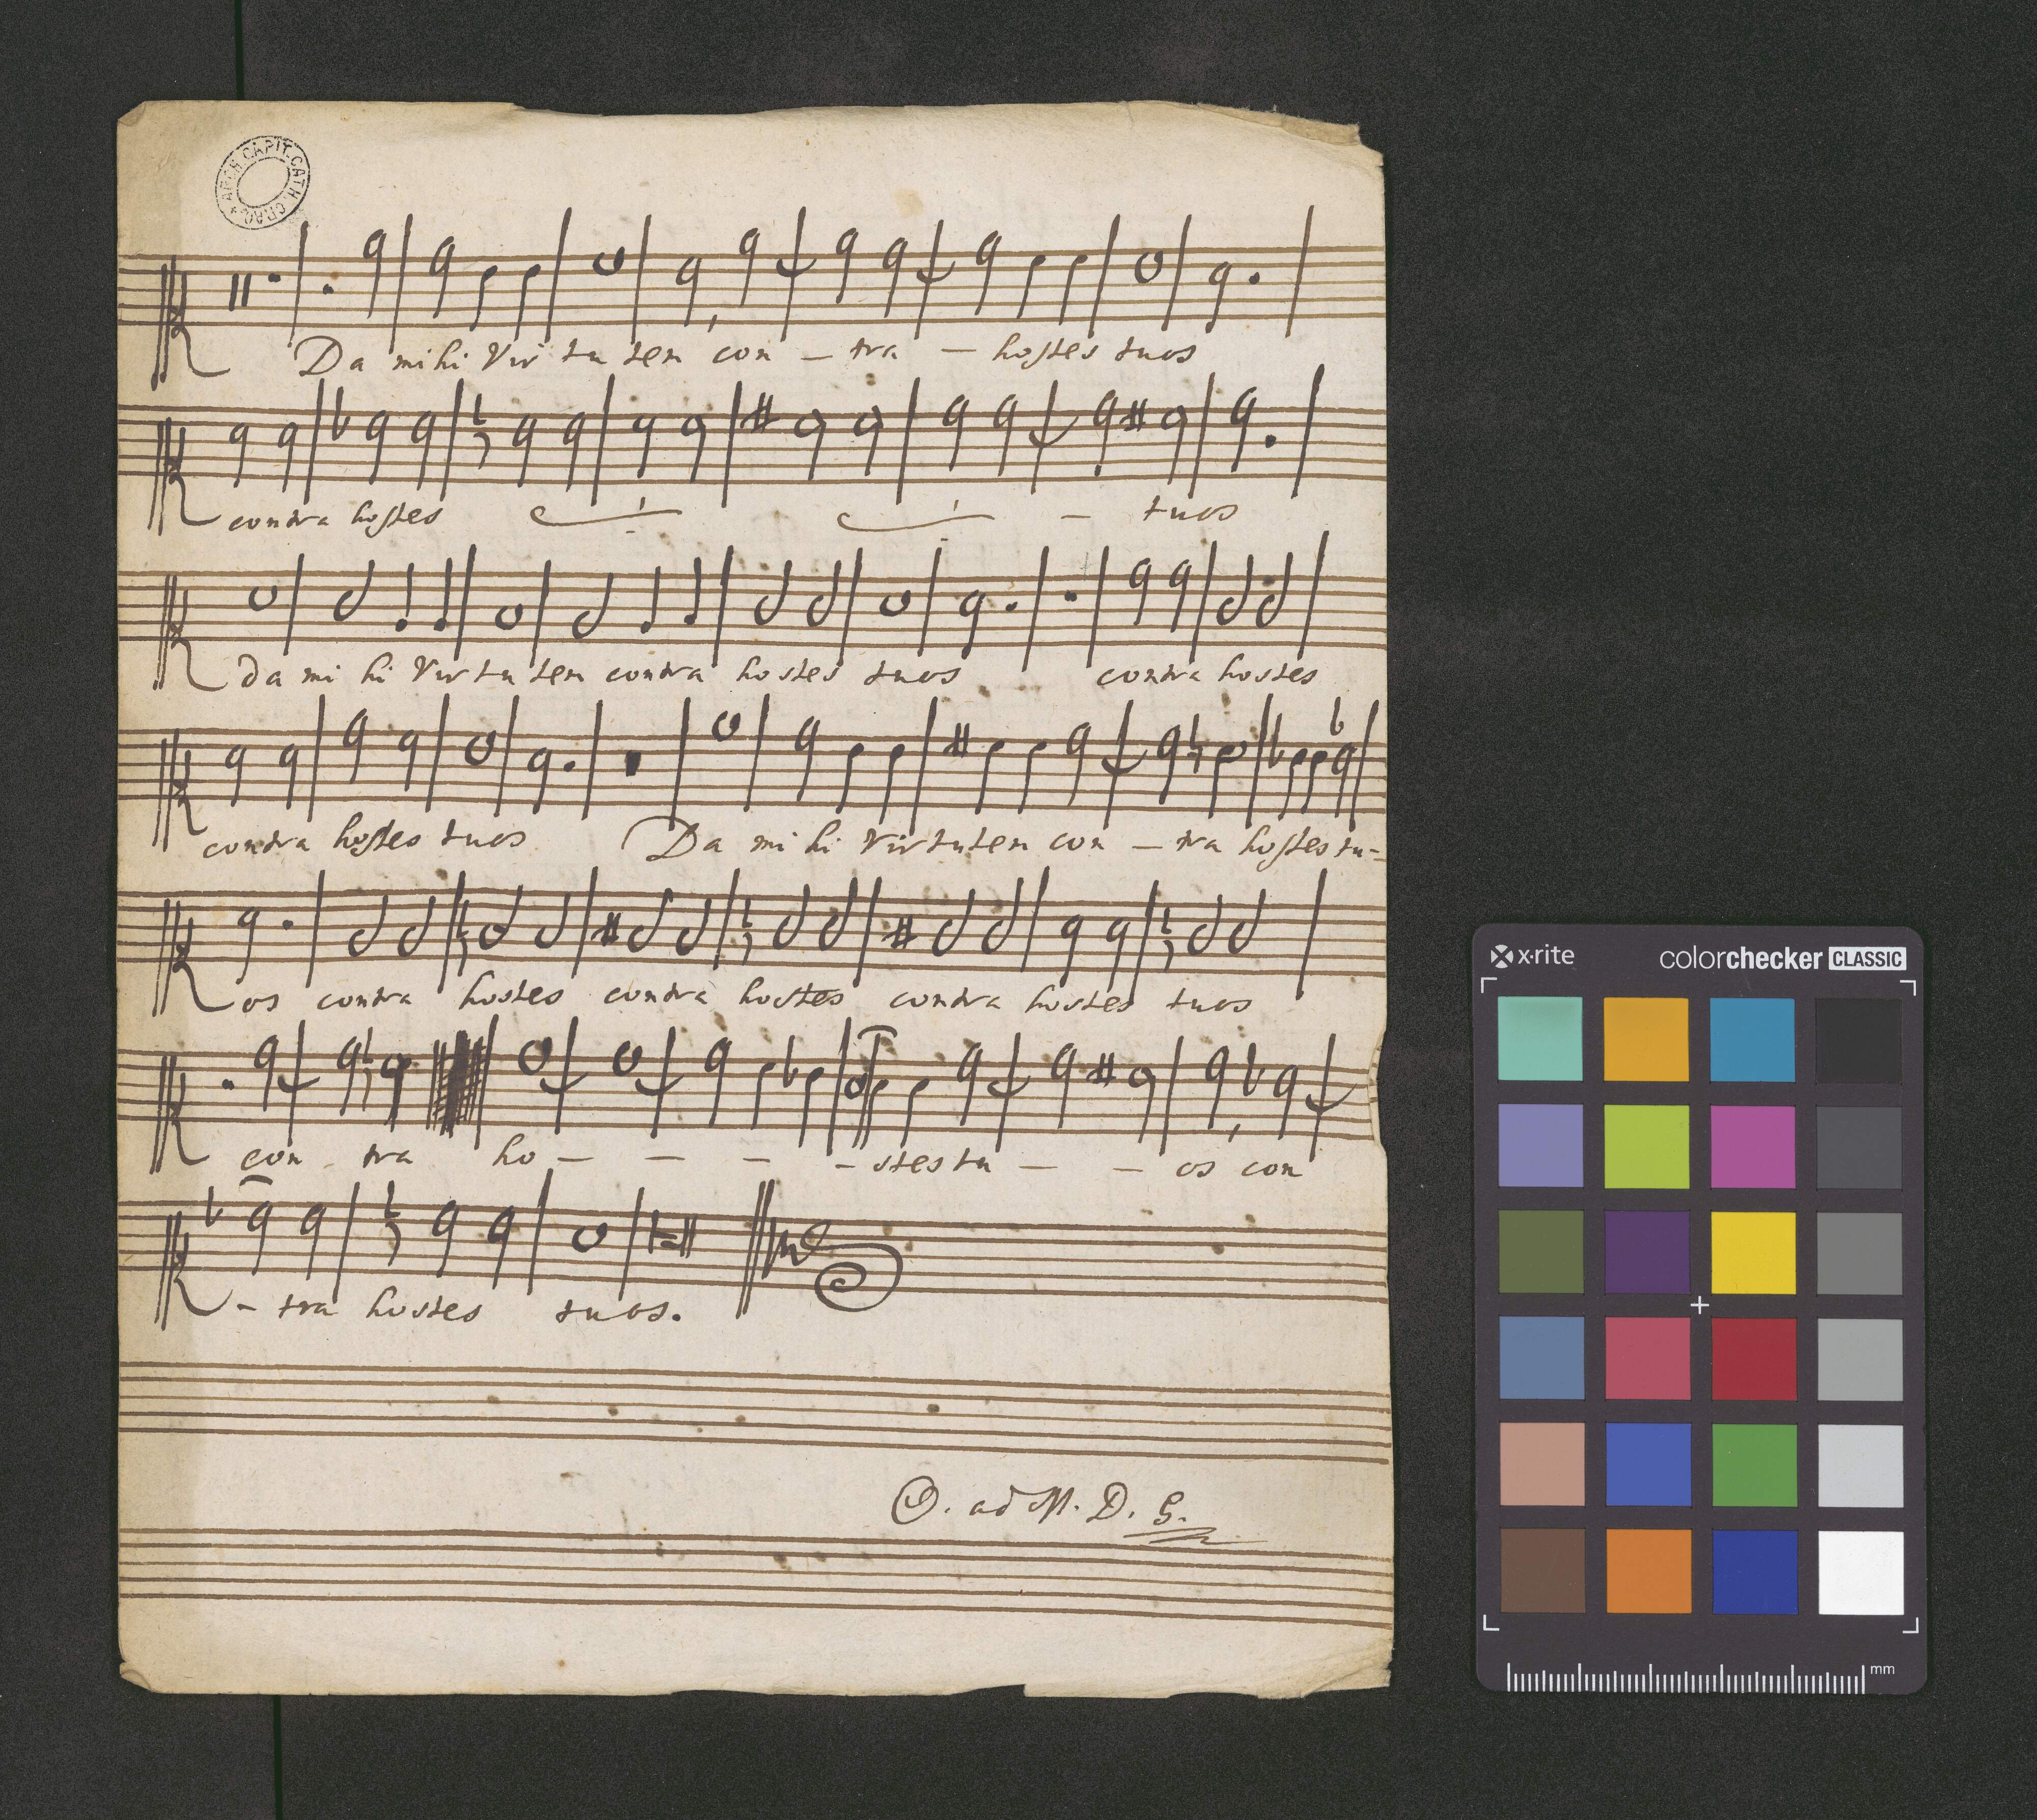 ARCH. CAPIT. CATH. CRAC.
Da mihi Virtutem con - tra - hostes tuos
contra hostes - tuos
da mi hi Virtutem contra hostes tuos contra hostes
contra hostes tuos Da mi hi Virtutem con - tra hostes tu-
os contra hostes contra hostes contra hostes tuos
con - tra ho - - - - stes tu - - os con
- tra hostes tuos.
O. ad M. D. G.
x·rite colorchecker CLASSIC
mm